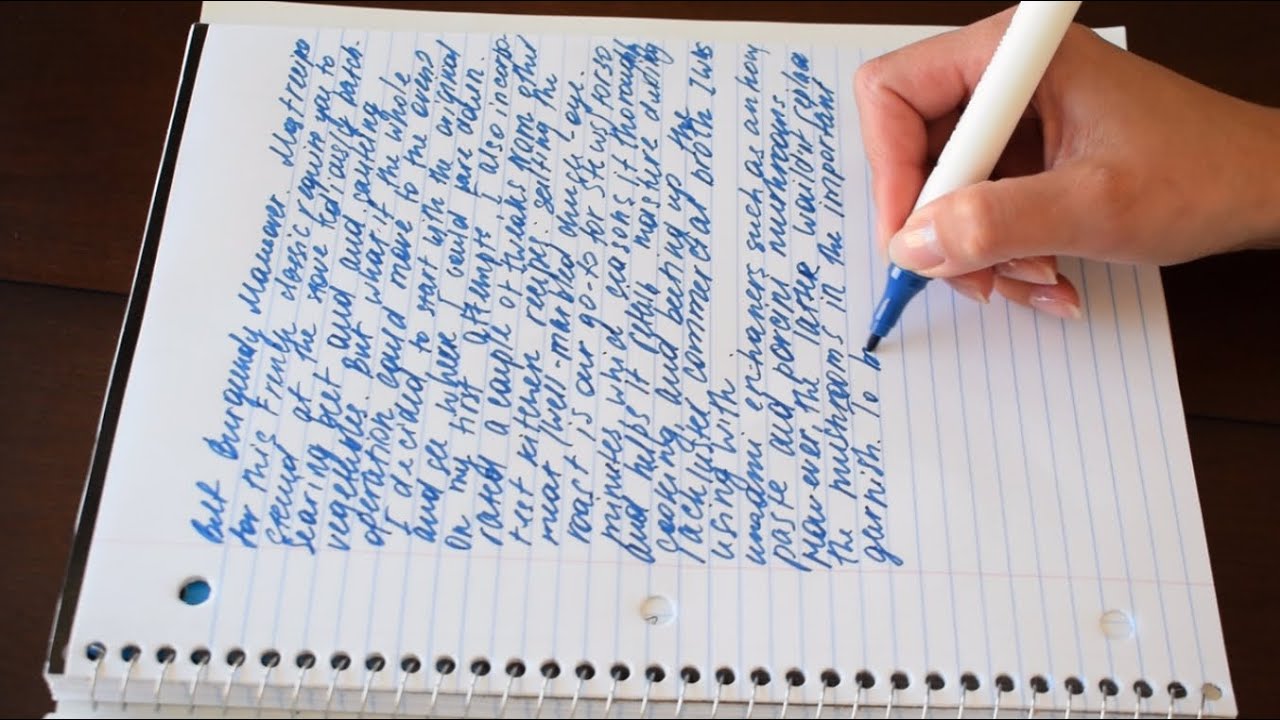 Bulf Burgundy Maneuver. Most recips
for this French classic require you to
stend at the stove tediously batch.
searing beef and and sauteing
vegetables But what if the whole
operation could move to the oven?
I decided to start with the original
and see where I could pare down.
On my first attempts I also incorpo-
rated a couple of tweaks Nom other
test kitchen recipes. selting the
meat (well-marbled chuck-eye.
roast is our go-to for stews forso
minutes which seasons it thorough
and helps it retain moisture during
Cooking, and beefing up the
packaged commercial broth I was
using with
umami enhancers such as anchovy
paste and porcini mushrooms.
However the latter wouldn't replace
the mushrooms in the important
garnish. To m